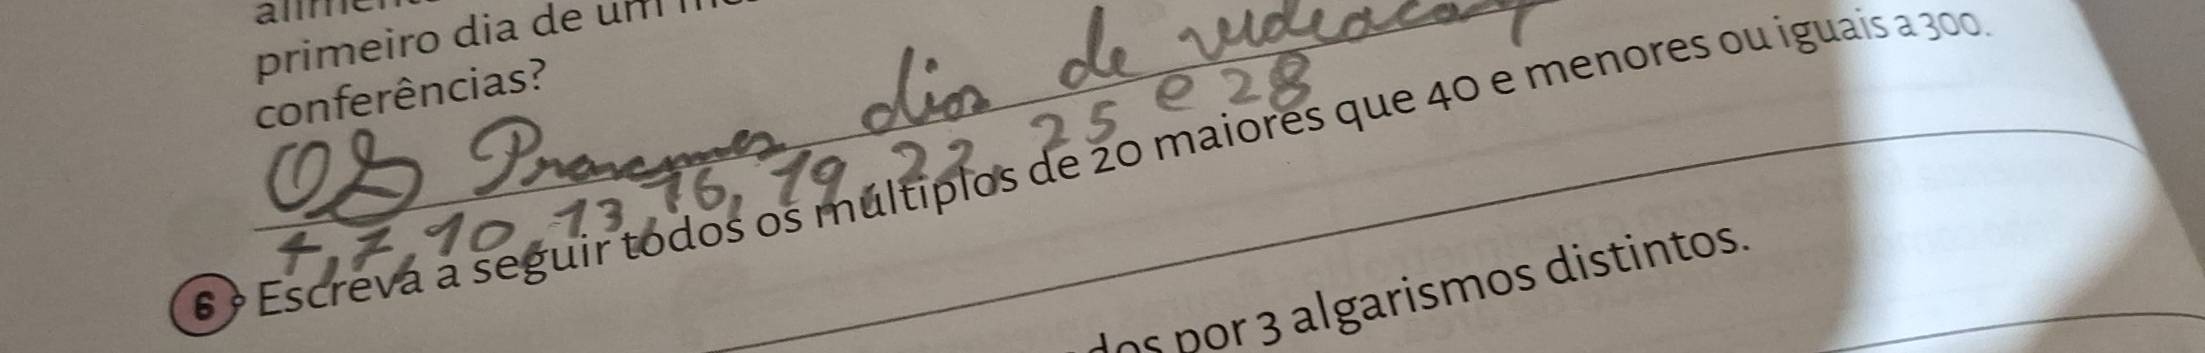 primeiro dia de um
conferências?
Os Proximos dias de vedação
4, 7, 10, 13, 16, 19, 22, 25 e 28
6 Escreva a seguir todos os múltiplos de 20 maiores que 40 e menores ou iguais a 300.
por 3 algarismos distintos.